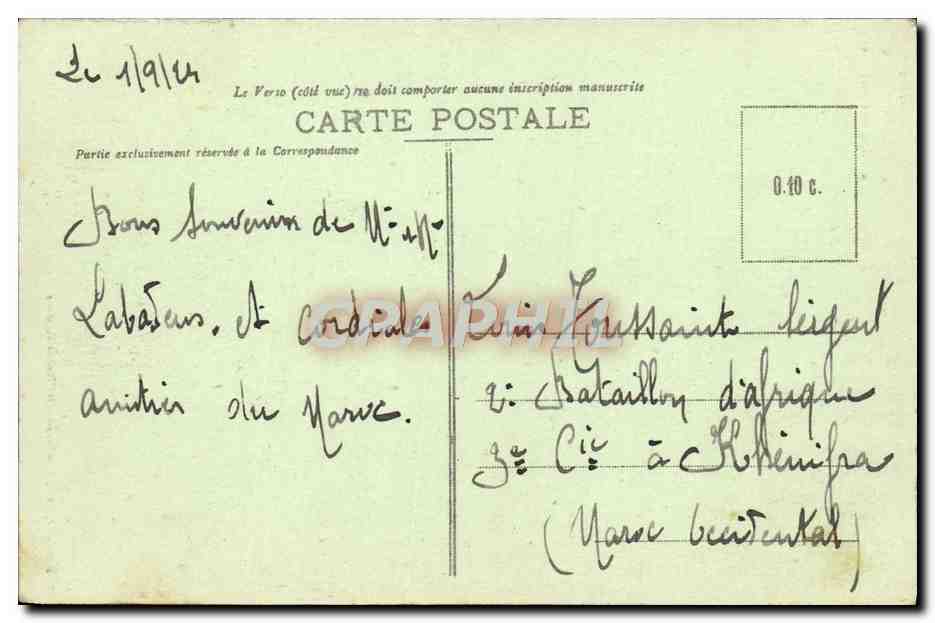 Le 1/9/24
Le Verso (côté vue) ne doit comporter aucune inscription manuscrite
CARTE POSTALE
Partie exclusivement réservée à la Correspondance
0.10 c.
Bons Souvenirs de
et cordiale
amitiés du Maroc.
GRAPHI
Louis Toussaint Sergent
2e Bataillon d'afrique
3e Cie à Khénifra
(Maroc Occidental)